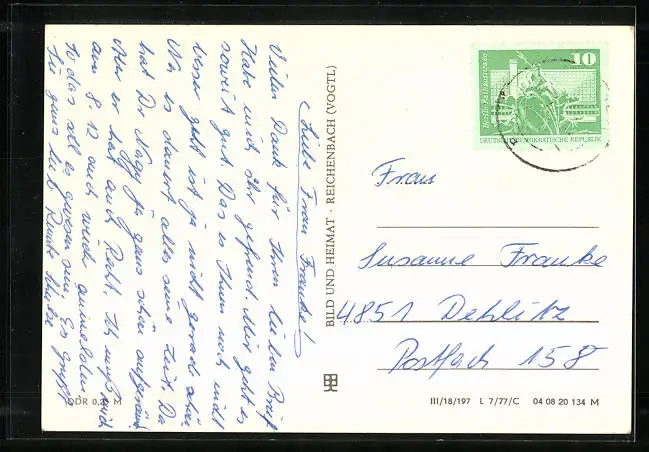 Liebe Frau Franke!
Vielen Dank für Ihren lieben Brief
Habe mich sehr gefreut. Mir geht es
soweit gut. Das es Ihnen noch nicht
besser geht ist ja nicht gerade schön
Na, es dauert alles seine Zeit. Da
hat Dr. ja ganz schön aufgeräumt
Aber er hat auch Recht. Ich muß mich
am 8. 12 auch wieder
so das all es gewesen sein. Es grüßt
Sie ganz lieb Renate
DDR 0,25 M
BILD UND HEIMAT · REICHENBACH (VOGTL)
Berlin, Rathausstraße
10
DEUTSCHE DEMOKRATISCHE REPUBLIK
Frau
Susanne Franke
4851 Dehlitz
Postfach 158
III/18/197 L 7/77/C 04 08 20 134 M